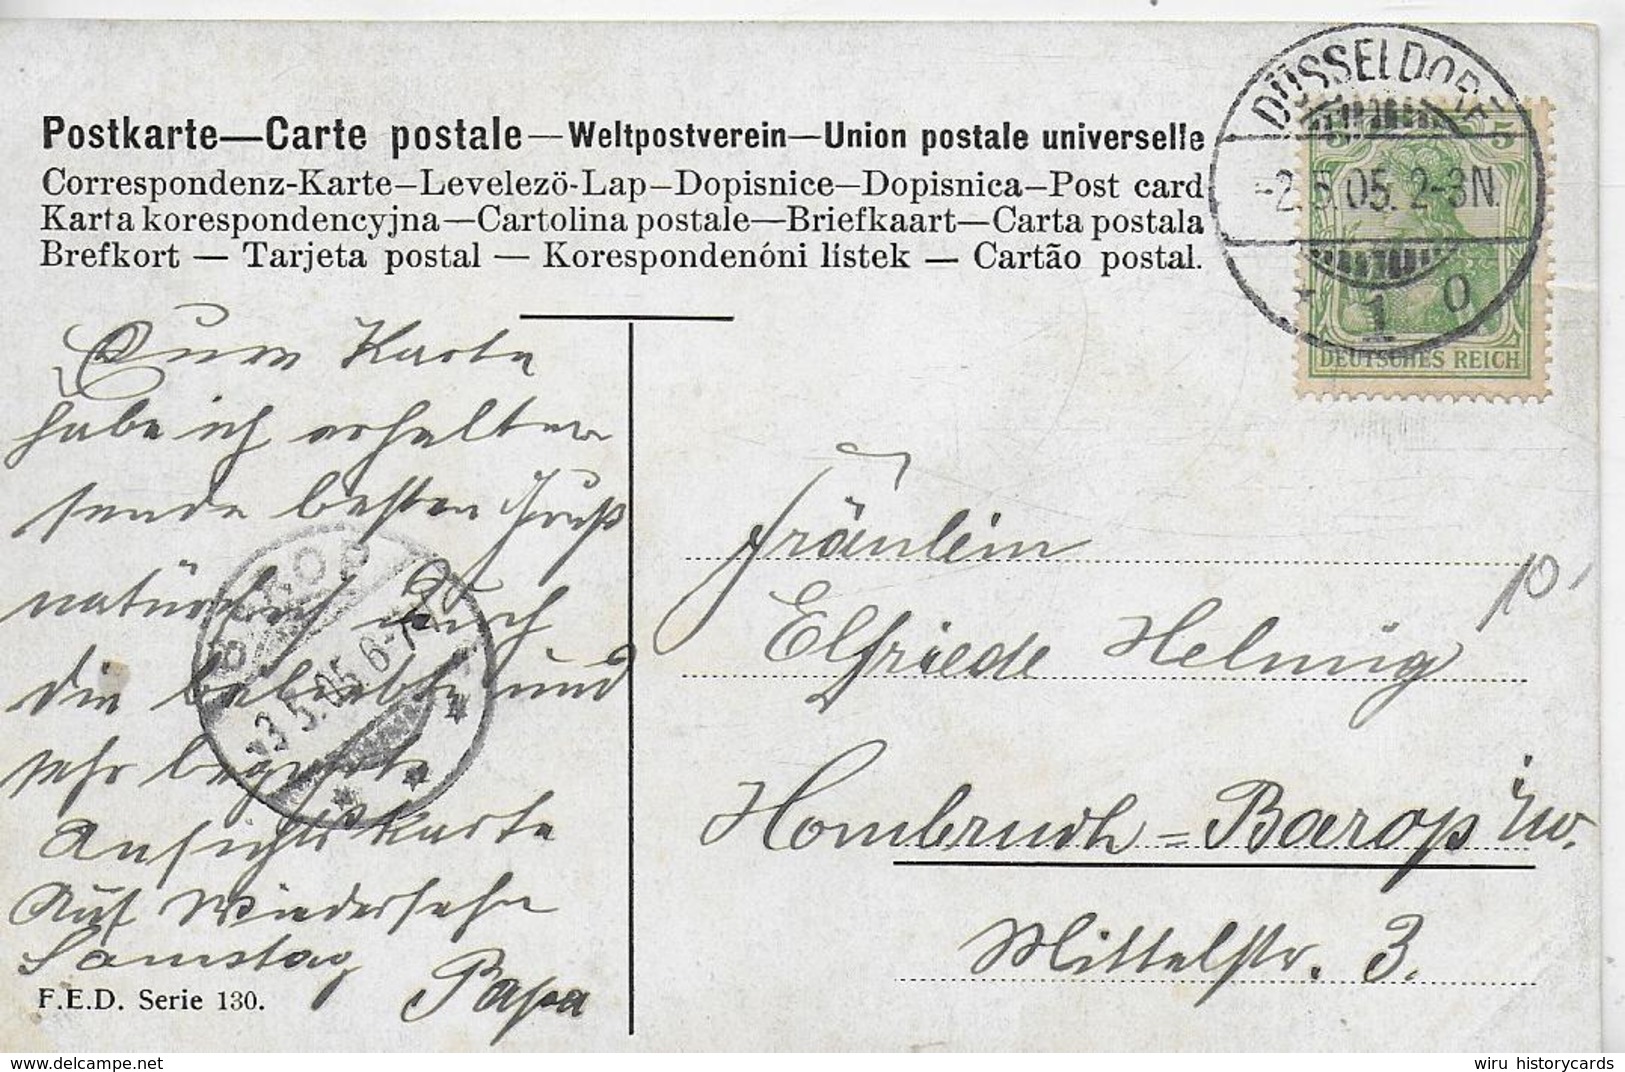 Postkarte—Carte postale—Weltpostverein—Union postale universelle
Correspondenz-Karte—Levelezö-Lap—Dopisnice—Dopisnica—Post card
Karta korespondencyjna—Cartolina postale—Briefkaart—Carta postala
Brefkort — Tarjeta postal — Korespondenóni listek — Cartão postal.
DÜSSELDORF
-2.5.05. 2-3N.
* 1 o
5 5
DEUTSCHES REICH
Karte
habe ich erhalten
sende besten Gruß
natürlich durch
die beliebte und
sehr begehrte
Ansichtskarte
Auf Wiedersehn
Samstag Papa
BAROP
*3.5.05. 6-7
* * *
Fräulein
Elfriede Helmig
Hombruch=Barop i/w.
Mittelstr. 3.
10
F.E.D. Serie 130.
wiru historycards